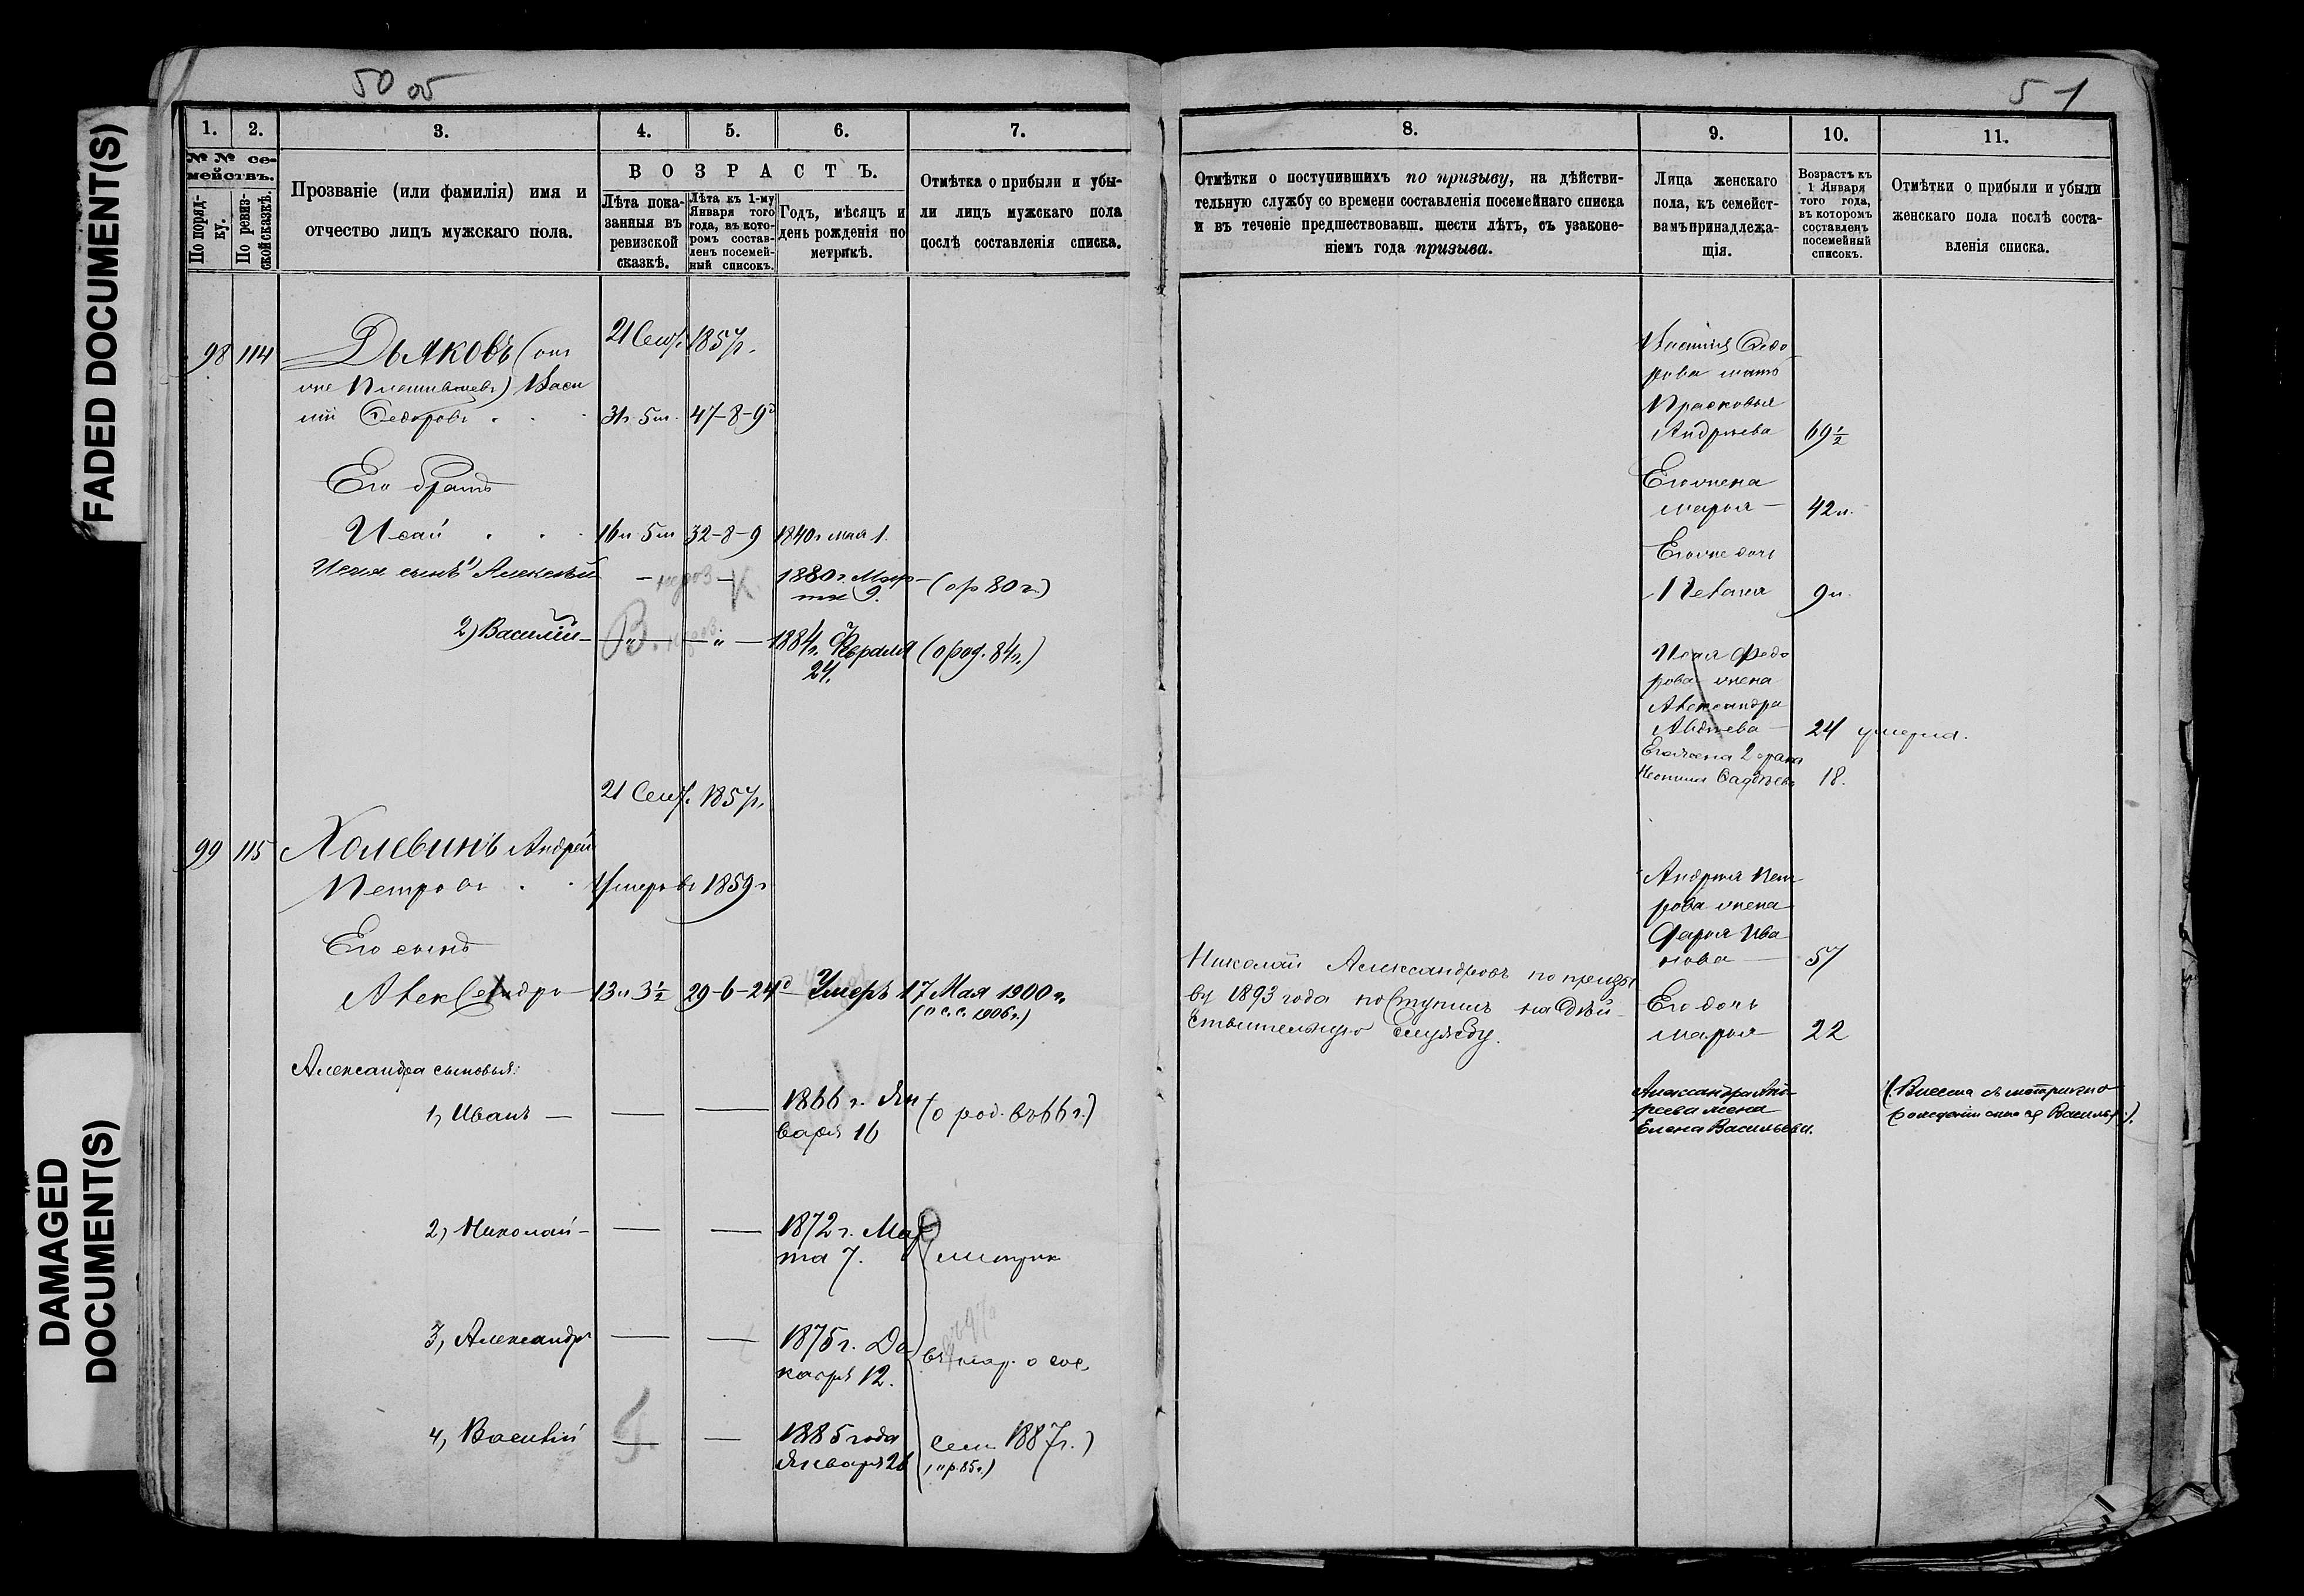 FADED DOCUMENT(S)
DAMAGED
DOCUMENT(S)
50 об
1.
2.
3.
4.
5.
6.
7.
№ № се-
мействъ.
По поряд-
ку.
По ревиз-
ской сказкѣ.
Прозваніе (или фамилія) имя и
отчество лицъ мужскаго пола.
ВОЗРАСТЪ.
Лѣта пока-
занныя въ
ревизской
сказкѣ.
Лѣта къ 1-му
Января того
года, въ кото-
ромъ состав-
ленъ посемей-
ный списокъ.
Годъ, мѣсяцъ и
день рожденія по
метрикѣ.
Отмѣтка о прибыли и убы-
ли лицъ мужскаго пола
послѣ составленія списка.
21 Сент. 1857 г.
98 114 Дьяковъ (онъ
же) Васи
лій Федоровъ 31 г. 5 м. 47-8-9
Его братъ
Исай 16 л 5 м 32-8-9 1840 г мая 1.
Исая сынъ 1) Алексѣй — — 1880 г. Мар- (о р 80 г.)
та 9.
2) Василій — " — " — 1884 г. Февраля (о род. 84 г.)
24.
21 Сент. 1857 г.
99 115 Холевинъ Андрей
Петровъ Умеръ въ 1859 г
Его сынъ
Александръ 13 л 3½ 29-6-24 Умеръ 17 Мая 1900 г.
(п с. с. 1906 г.)
Александра сыновья:
1, Иванъ — — — 1866 г. Ян (о род. въ 66 г.)
варя 16
2, Николай — — — 1872 г. Мар
та 7. (метрик
3, Александръ — — 1875 г. Де
кабря 12. въ мар. о сос.
4, Василій — — 1885 года сем. 1887 г.)
Января 26 (о р. 85 г.)
51
8.
9.
10.
11.
Отмѣтки о поступившихъ по призыву, на дѣйстви-
тельную службу со времени составленія посемейнаго списка
и въ теченіе предшествовавш. шести лѣтъ, съ узаконе-
ніемъ года призыва.
Лица женскаго
пола, къ семейст-
вамъ принадлежа-
щія.
Возрастъ къ
1 Января
того года,
въ которомъ
составленъ
посемейный
списокъ.
Отмѣтки о прибыли и убыли
женскаго пола послѣ соста-
вленія списка.
Василія Федо
рова мать
Прасковья
Андреева 69½
Его жена
Марья — 42 л.
Его же дочь
Пелагия 9 л.
Исая Федо
рова жена
Александра
Авдѣева — 24 умерла.
Его жена 2 брака
18.
Андрея Пет
рова жена
Дарья Ива
нова — 57
Его дочь
Марья — 22
Николай Александровъ по призы
ву 1893 года поступилъ на дѣй
ствительную службу.
Александра Анд-
реева жена
Елена Васильева.
(Внесена съ метрикою
рожденіи сына ея Василья).